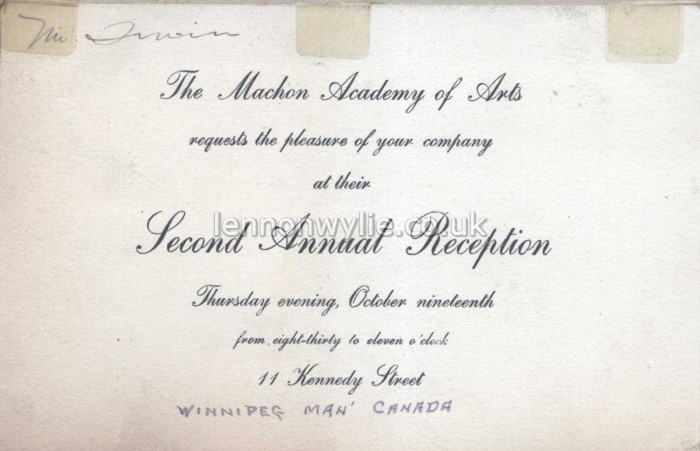 Mr Irwin
The Machon Academy of Arts
requests the pleasure of your company
at their
lennonwylie.co.uk
Second Annual Reception
Thursday evening, October nineteenth
from eight-thirty to eleven o'clock
11 Kennedy Street
WINNIPEG MAN' CANADA